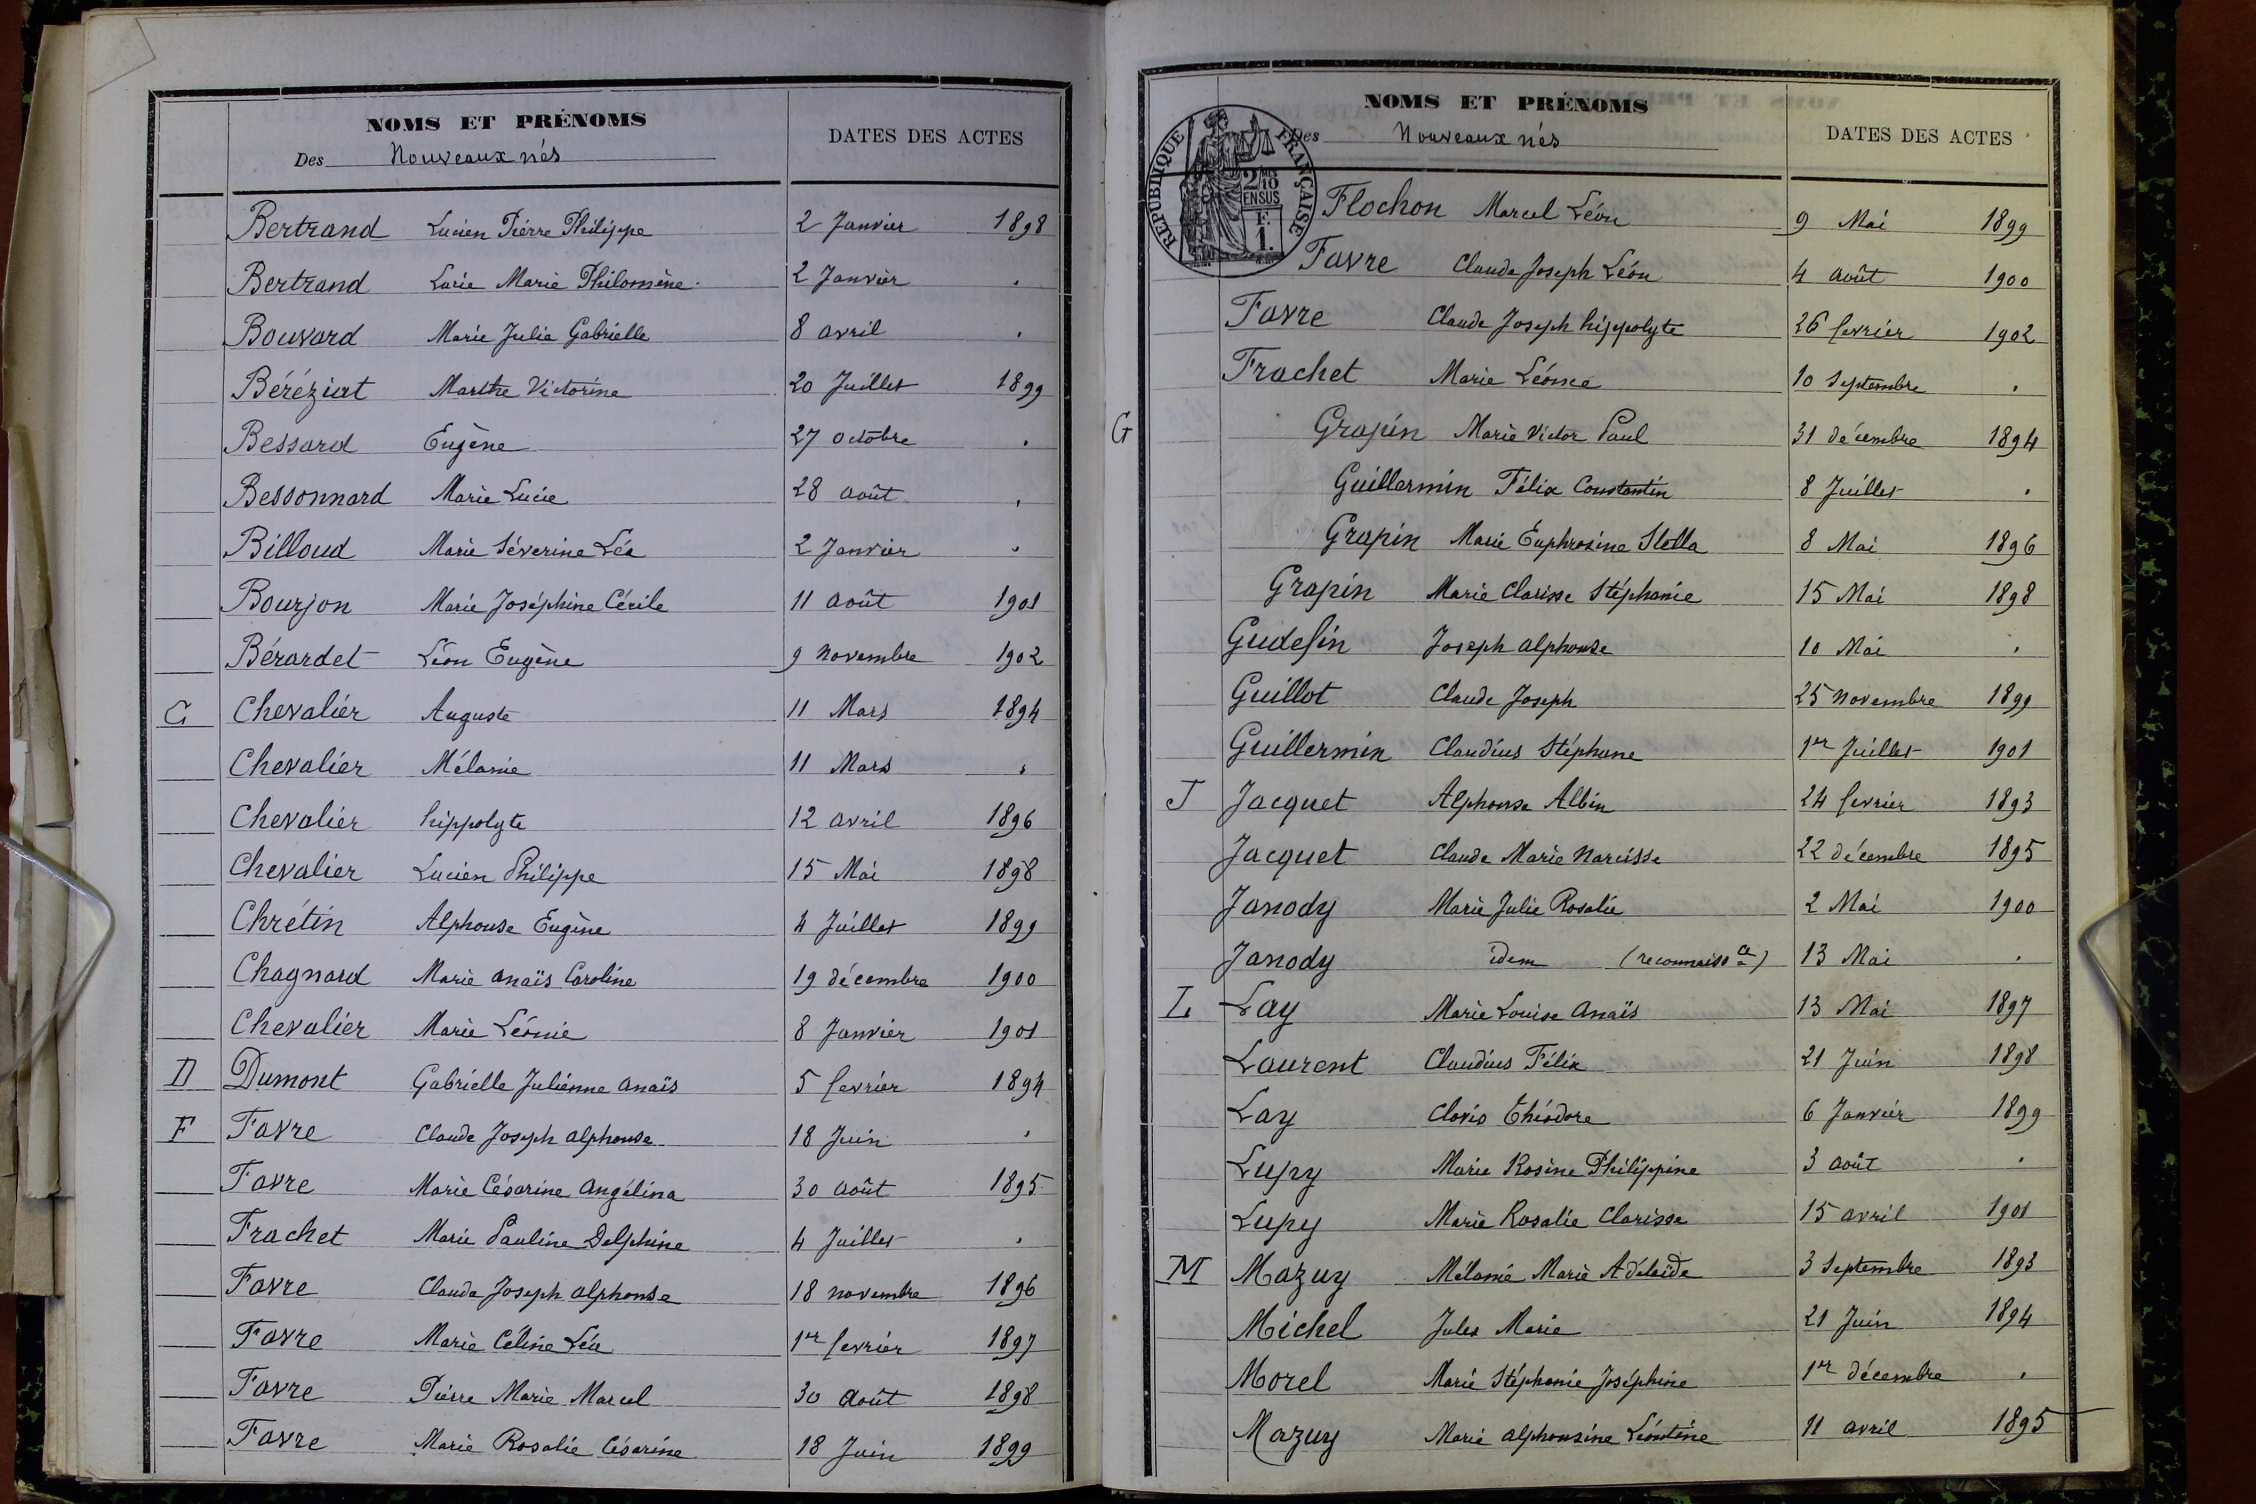 NOMS ET PRÉNOMS
DATES DES ACTES
Des Nouveaux nés
Bertrand Lucien Pierre Philippe 2 Janvier 1898
Bertrand Lucie Marie Philomène 2 Janvier .
Bouvard Marie Julia Gabrielle 8 avril .
Béréziat Marthe Victorine 20 Juillet 1899
Bessard Eugène 27 octobre .
Bessonnard Marie Lucie 28 août .
Billoud Marie Séverine Léa 2 Janvier .
Bourjon Marie Joséphine Cécile 11 août 1901
Bérardet Léon Eugène 9 novembre 1902
C Chevalier Auguste 11 Mars 1894
Chevalier Mélanie 11 Mars .
Chevalier hippolyte 12 avril 1896
Chevalier Lucien Philippe 15 Mai 1898
Chrétin Alphonse Eugène 4 Juillet 1899
Chagnard Marie anaïs Caroline 19 décembre 1900
Chevalier Marie Léonie 8 Janvier 1901
D Dumont Gabrielle Julienne anaïs 5 fevrier 1894
F Favre Claude Joseph alphonse 18 Juin .
Favre Marie Césarine angélina 30 août 1895
Frachet Marie Pauline Delphine 4 Juillet .
Favre Claude Joseph alphonse 18 novembre 1896
Favre Marie Céline Léa 1er fevrier 1897
Favre Pierre Marie Marcel 30 août 1898
Favre Marie Rosalie Césarine 18 Juin 1899
NOMS ET PRÉNOMS
DATES DES ACTES
Des Nouveaux nés
RÉPUBLIQUE FRANÇAISE
2/10
EN SUS
F.
1.
Flochon Marcel Léon 9 Mai 1899
Favre Claude Joseph Léon 4 août 1900
Favre Claude Joseph hippolyte 26 fevrier 1902
Frachet Marie Léonce 10 Septembre .
G Grapin Marie Victor Paul 31 décembre 1894
Guillermin Félix Constantin 8 Juillet .
Grapin Marie Euphrosine Stella 8 Mai 1896
Grapin Marie Clarisse Stéphanie 15 Mai 1898
Gudefin Joseph alphonse 10 Mai .
Guillot Claude Joseph 25 novembre 1899
Guillermin Claudius Stéphane 1er Juillet 1901
J Jacquet Alphonse Albin 24 fevrier 1893
Jacquet Claude Marie Narcisse 22 décembre 1895
Janody Marie Julie Rosalie 2 Mai 1900
Janody idem (reconnaissce) 13 Mai .
L Lay Marie Louise anaïs 13 Mai 1897
Laurent Claudius Félix 21 Juin 1898
Lay Clovis Théodore 6 Janvier 1899
Lupy Marie Rosine Philippine 3 août .
Lupy Marie Rosalie Clarisse 15 avril 1901
M Mazuy Mélanie Marie Adelaïde 3 Septembre 1893
Michel Jules Marie 21 Juin 1894
Morel Marie Stéphanie Joséphine 1er décembre .
Mazuy Marie alphonsine Léontine 11 avril 1895